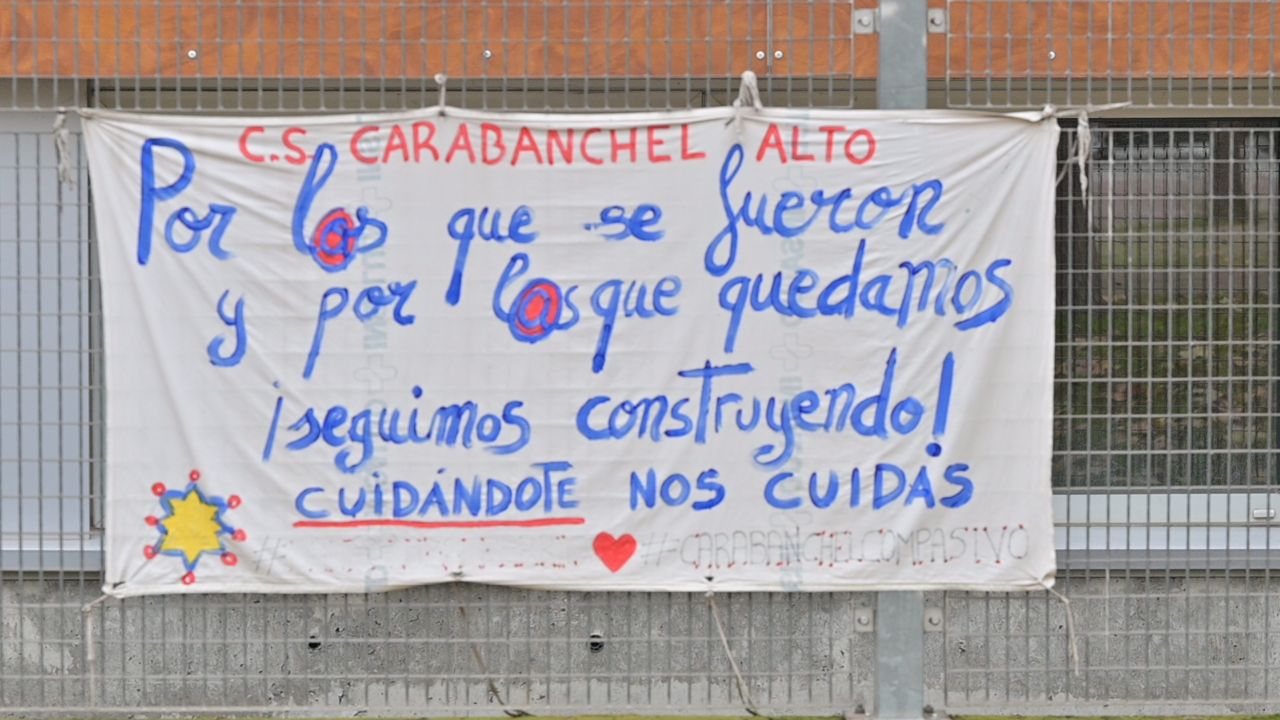 C.S. CARABANCHEL ALTO
Por l@s que se fueron
y por l@s que quedamos
¡seguimos construyendo!
CUIDÁNDOTE NOS CUIDAS
#CARABANCHELCOMPASIVO